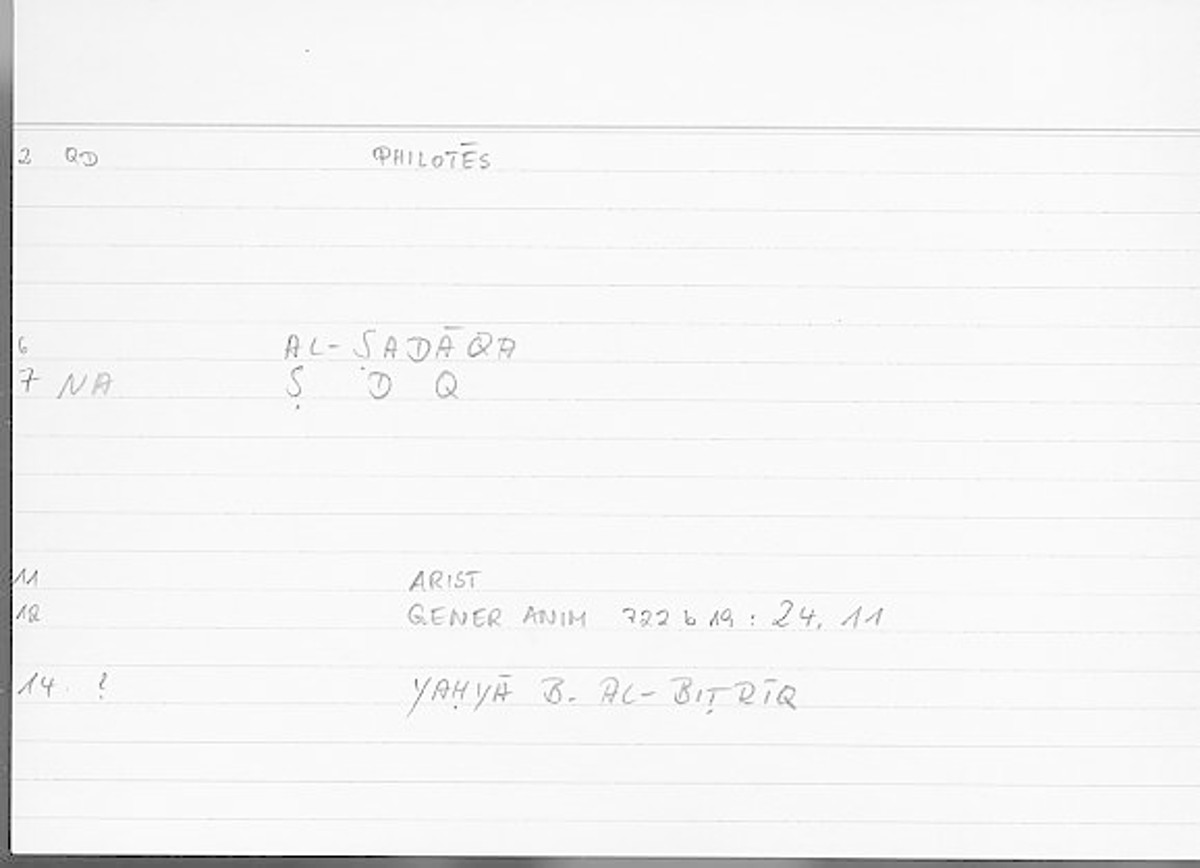 2 QD PHILOTĒS
6 AL-SADĀQA
7 NA Ṣ D Q
11 ARIST
12 GENER ANIM 722 b 19 : 24, 11
14. ? YAḤYĀ B. AL-BIṬRĪQ